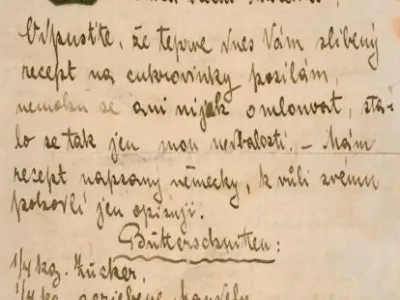 Odpusťte, že teprve dnes Vám slíbený
recept na cukrovinky posílám,
nemohu se ani nijak omlouvat, sta-
lo se tak jen mou nedbalostí. – Mám
recept napsaný německy, k vůli svému
pohodlí jen opisuji.
Butterschnitten:
1/4 kg. Zucker,
1/4 kg. geriebene Mandeln